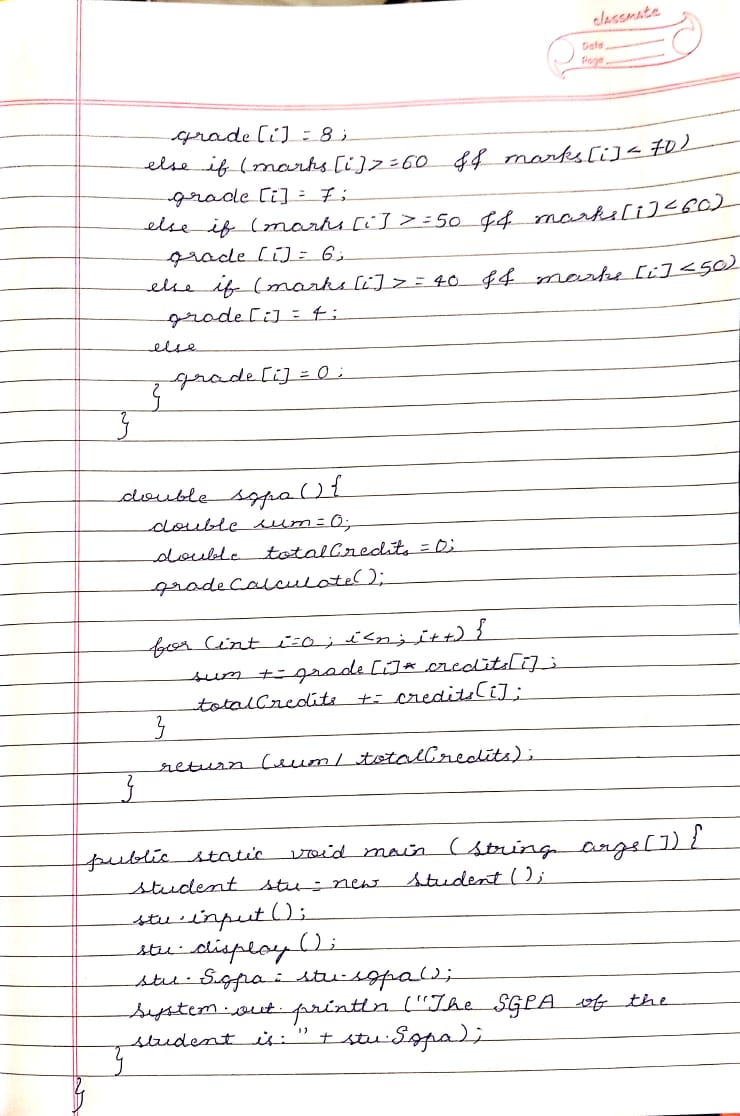 classmate
Date
Page
grade[i] = 8;
else if (marks[i]>=60 && marks[i]<70)
grade[i] = 7;
else if (marks[i]>=50 && marks[i]<60)
grade[i] = 6;
else if (marks[i]>=40 && marks[i]<50)
grade[i] = 4;
else
grade[i] = 0;
}
}
double sgpa(){
double sum=0;
double totalCredits=0;
gradeCalculate();
for (int i=0; i<n; i++) {
sum += grade[i]* credits[i];
totalCredits += credits[i];
}
return (sum/ totalCredits);
}
public static void main (String args[]) {
student stu = new student();
stu.input();
stu.display();
stu.Sgpa = stu.sgpa();
System.out.println ("The SGPA of the
student is:" + stu.Sgpa);
}
}